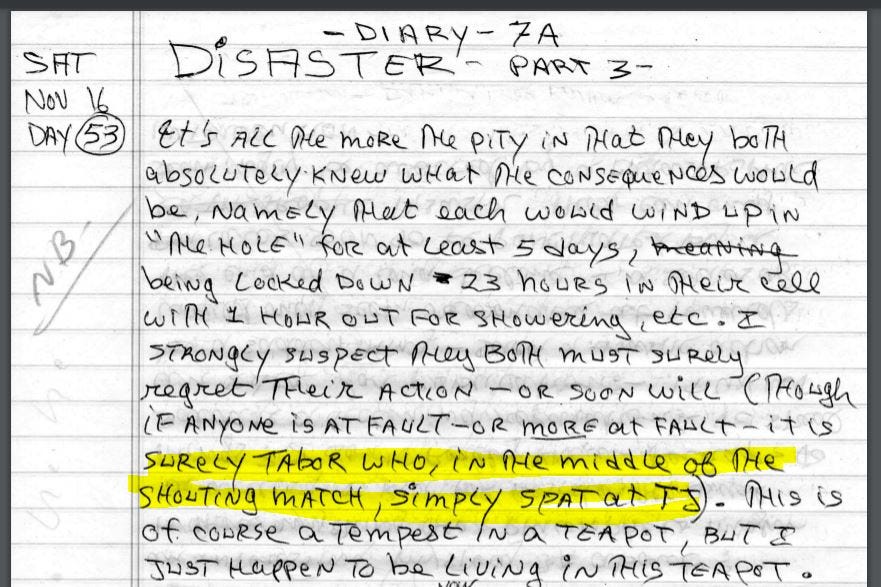 - DIARY - 7A
SAT DISASTER - PART 3 -
NOV 16
DAY 53 It's ALL the more the pity in that they both
absolutely knew what the consequences would
be, namely that each would wind up in
NB- "the HOLE" for at least 5 days, meaning
being locked down - 23 hours in their cell
with 1 hour out for showering, etc. I
strongly suspect they both must surely
regret their action - or soon will (though
if anyone is at fault - or more at fault - it is
surely Tabor who, in the middle of the
shouting match, simply spat at TJ). This is
of course a tempest in a teapot, but I
just happen to be living in this teapot.
now